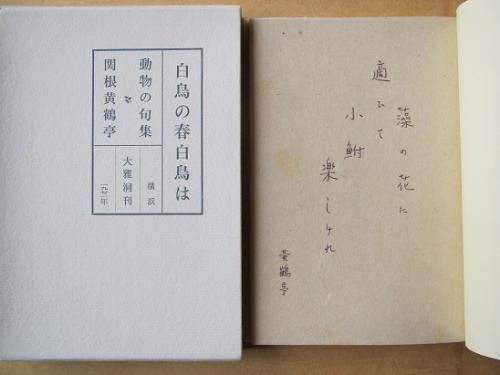 白鳥の春白鳥は
動物の句集
関根黄鶴亭
横浜
大雅洞刊
藻の花に
適ひて
小鮒
楽しけれ
黄鶴亭